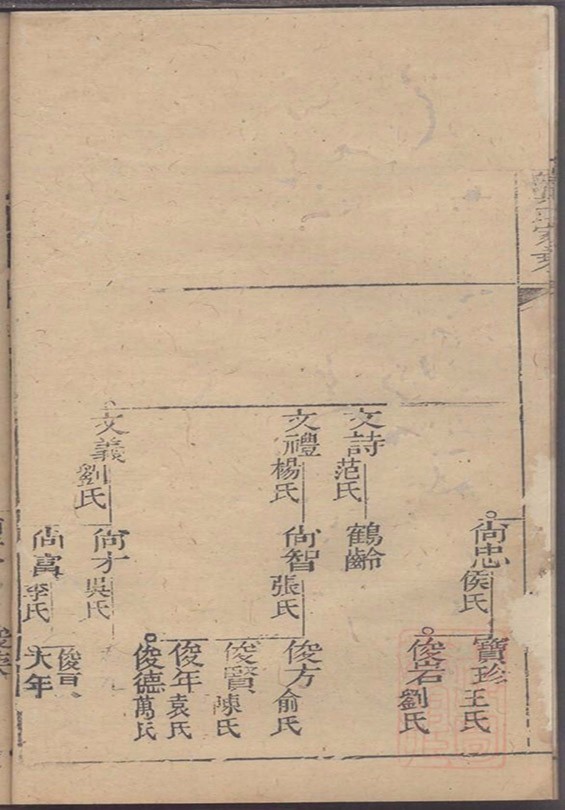 文詩 范氏
文禮 楊氏
文義 劉氏
尚忠 侯氏
鶴齡
尚智 張氏
尚才 吳氏
尚富 李氏
寶珍 王氏
俊岩 劉氏
俊方 俞氏
俊賢 陳氏
俊年 袁氏
俊德 萬氏
俊
大年